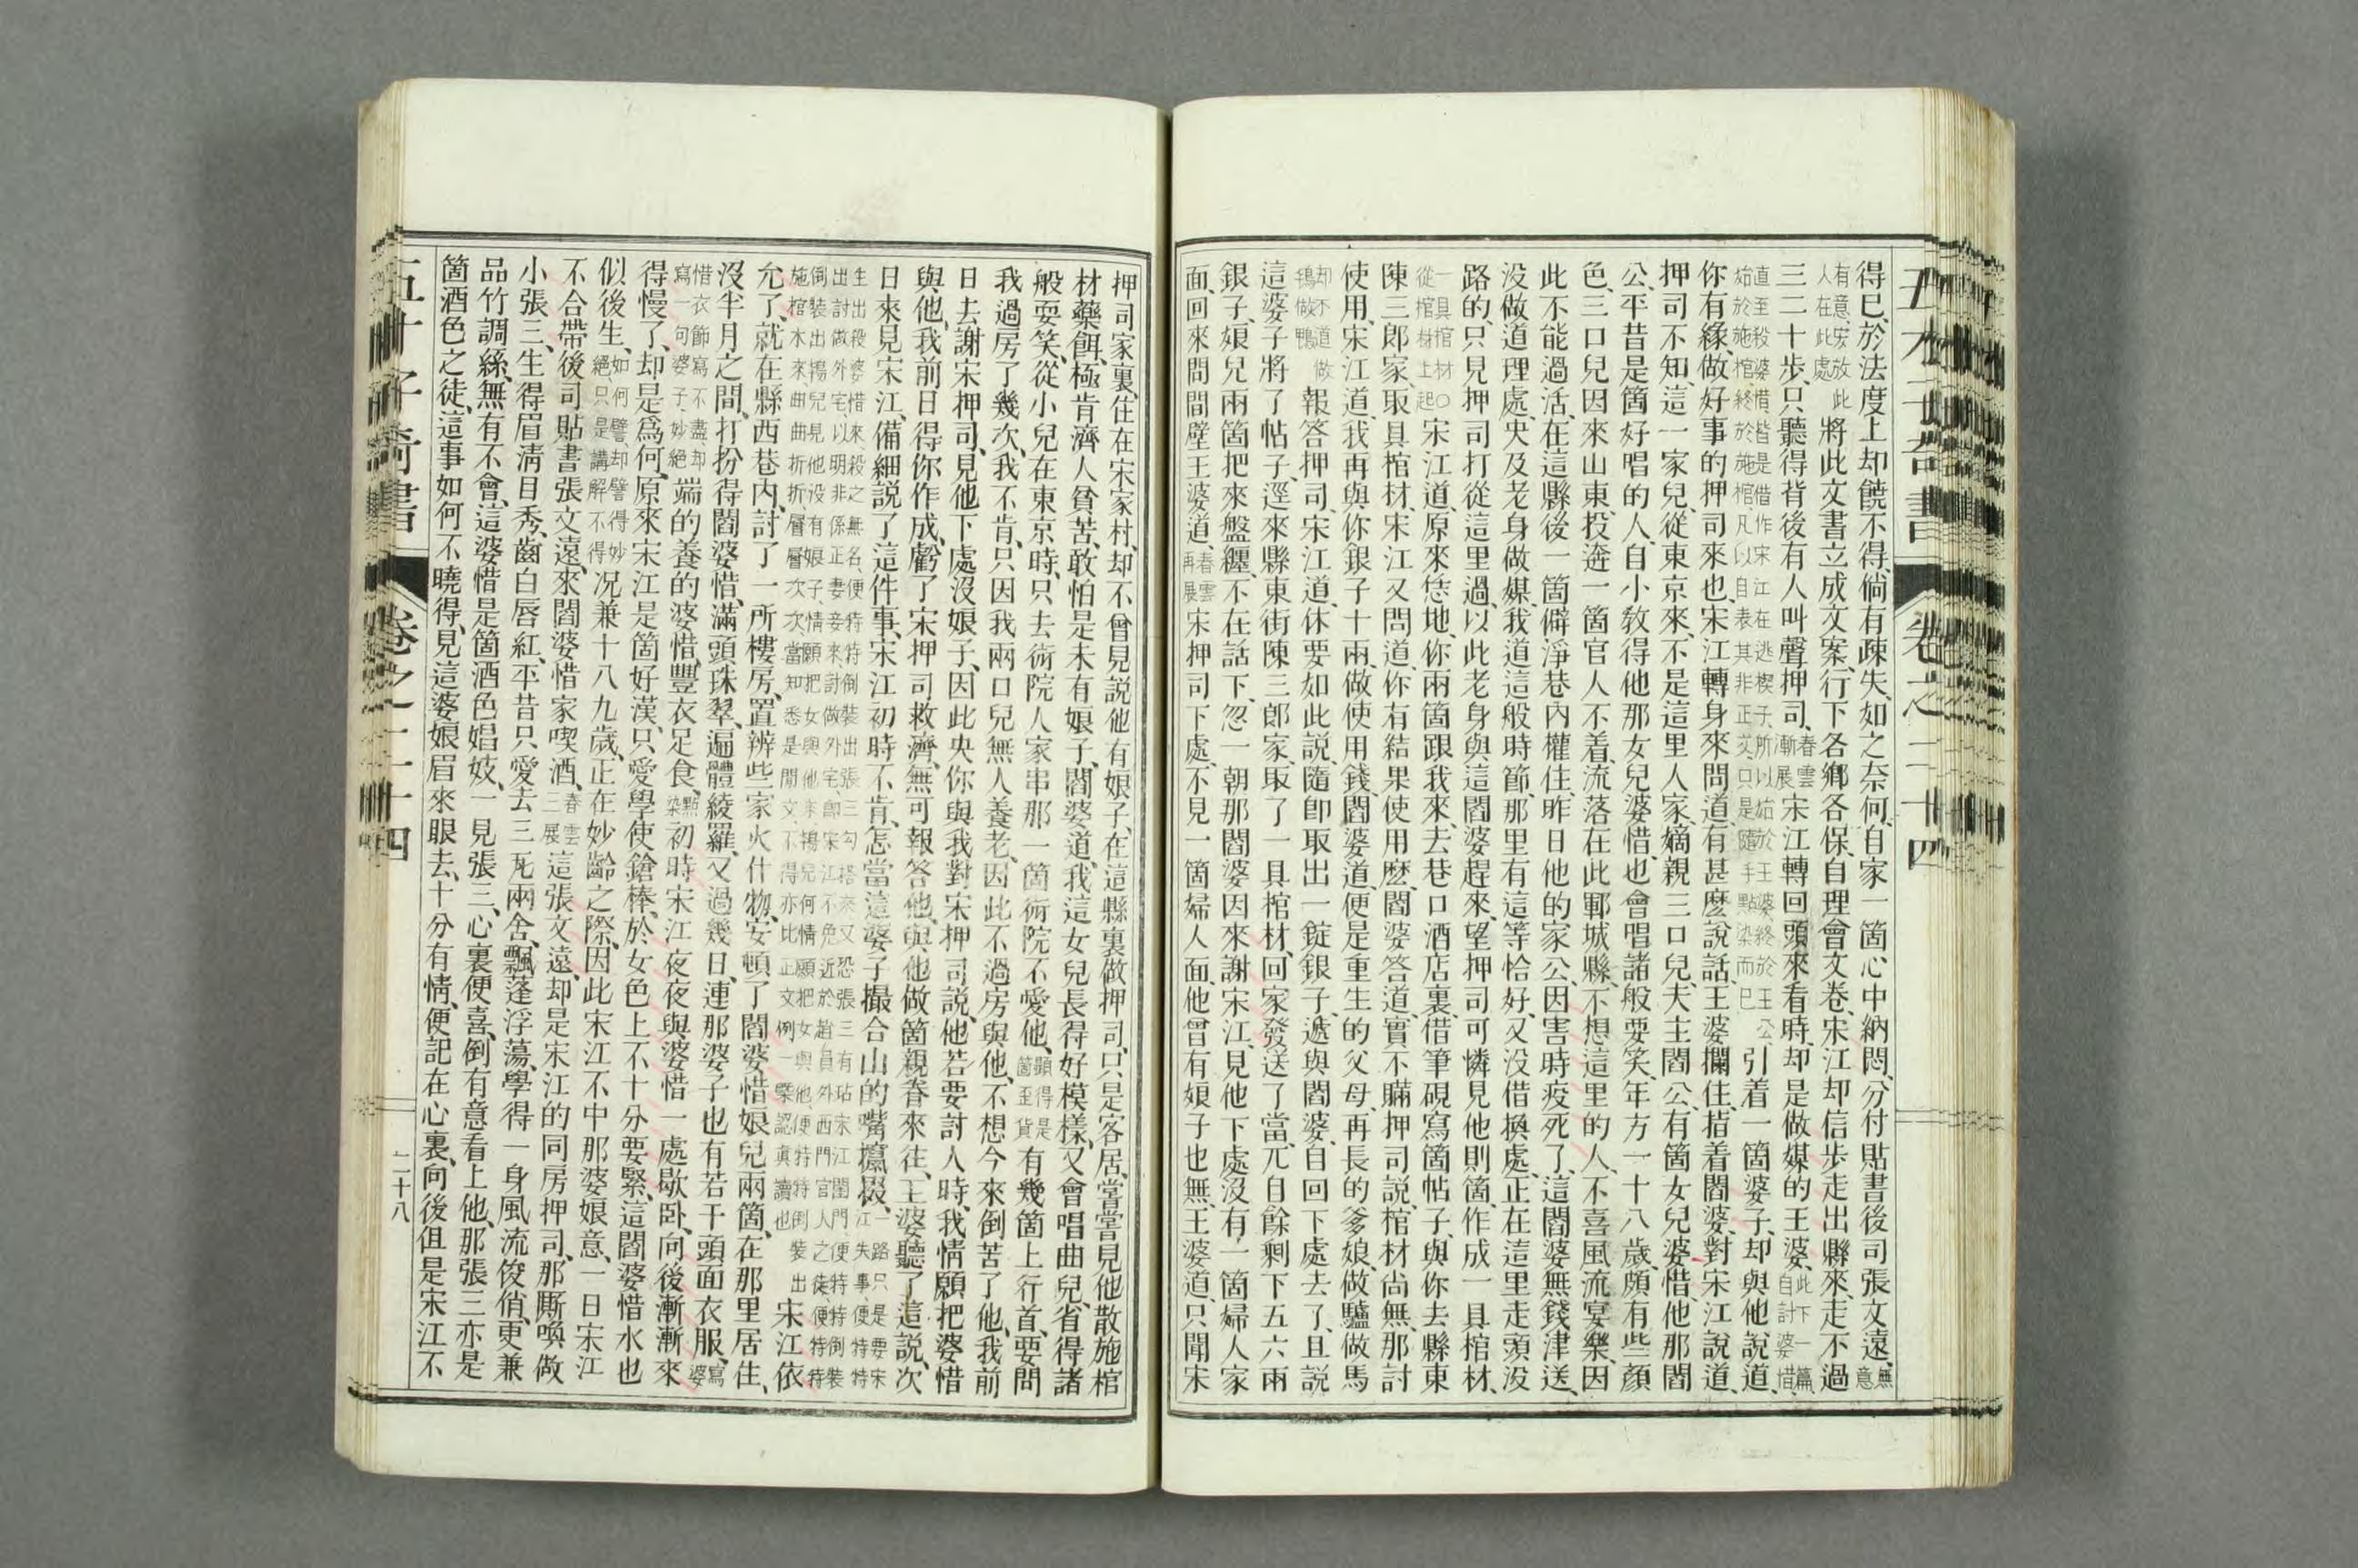 得已、於法度上却饒不得、倘有疎失、如之奈何、自家一箇心中納悶、分付貼書後司張文遠、無意
有意、安放此人在此處將此文書立成文案、行下各鄉各保、自理會文卷、宋江却信步走出縣來、走不過
三二十步、只聽得背後有人叫聲押司、春雲漸展宋江轉回頭來看時、却是做媒的王婆、此下一篇自計婆惜、
直至殺婆惜、皆是借作宋江在逃楔子、所以始於王婆、終於王公、始於施棺、終於施棺、凡以自表其非正文、只是隨手點染而已引着一箇婆子、却與他說道、
你有緣、做好事的押司來也、宋江轉身來問道、有甚麽說話、王婆攔住、指着閻婆、對宋江說道、
押司不知、這一家兒、從東京來、不是這里人家、嫡親三口兒、夫主閻公、有箇女兒婆惜、他那閻
公、平昔是箇好唱的人、自小敎得他那女兒婆惜也會唱諸般耍笑、年方一十八歲、頗有些顏
色、三口兒因來山東投逩一箇官人不着、流落在此鄆城縣、不想這里的人、不喜風流宴樂、因
此不能過活、在這縣後一箇僻淨巷內權住、昨日他的家公因害時疫死了、這閻婆無錢津送、
没做道理處、央及老身做媒、我道這般時節、那里有這等恰好、又没借換處、正在這里走頭没
路的、只見押司打從這里過、以此老身與這閻婆趕來、望押司可憐見他則箇、作成一具棺材、
一具棺材〇從棺材上起宋江道、原來恁地、你兩箇跟我來、去巷口酒店裏、借筆硯寫箇帖子、與你去縣東
陳三郎家、取具棺材、宋江又問道、你有結果使用麽、閻婆答道、實不瞞押司說、棺材尚無、那討
使用、宋江道、我再與你銀子十兩、做使用錢、閻婆道、便是重生的父母、再長的爹娘、做驢做馬
却不道做鴇做鴨報答押司、宋江道、休要如此說、隨卽取出一錠銀子、遞與閻婆、自回下處去了、且說
這婆子將了帖子、逕來縣東街陳三郎家、取了一具棺材、回家發送了當、兀自餘剩下五六兩
銀子、娘兒兩箇把來盤纏、不在話下、忽一朝那閻婆因來謝宋江、見他下處没有一箇婦人家
面、回來問間壁王婆道、春雲再展宋押司下處、不見一箇婦人面、他曾有娘子也無、王婆道、只聞宋
押司家裏、住在宋家村、却不曾見說他有娘子、在這縣裏做押司、只是客居、嘗嘗見他散施棺
材藥餌、極肯濟人貧苦、敢怕是未有娘子、閻婆道、我這女兒長得好模樣、又會唱曲兒、省得諸
般耍笑、從小兒在東京時、只去術院人家串、那一箇術院不愛他、顯得是箇歪貨有幾箇上行首、要問
我過房了幾次、我不肯、只因我兩口兒無人養老、因此不過房與他、不想今來倒苦了他、我前
日去謝宋押司、見他下處没娘子、因此央你與我對宋押司說、他若要討人時、我情願把婆惜
與他、我前日得你作成、虧了宋押司救濟、無可報答他、與他做箇親眷來往、王婆聽了這說、次
日來見宋江、備細說了這件事、宋江初時不肯、怎當這婆子撮合山的嘴攛掇、一路只是要宋江失事、便特特
生出殺婆惜來、殺之無名、便特特倒裝出張三勾搭來、又恐張三有玷宋江閨門、便特特倒裝出討做外宅、以明非係正妻妾來、
允了、就在縣西巷內、討了一所樓房、置辦些家火什物、安頓了閻婆惜娘兒兩箇、在那里居住、
没半月之間、打扮得閻婆惜、滿頭珠翠、遍體綾羅、又過幾日、連那婆子也有若干頭面衣服、寫婆
惜衣飾寫不盡、却寫一句婆子、妙絕端的養的婆惜、豐衣足食、點染初時宋江夜夜與婆惜一處歇卧、向後漸漸來
得慢了、却是爲何、原來宋江是箇好漢、只愛學使鎗棒、於女色上不十分要緊、這閻婆惜水也
似後生、如何譬、却譬得妙絕、只是講解不得况兼十八九歲、正在妙齡之際、因此宋江不中那婆娘意、一日宋江
不合帶後司貼書張文遠、來閻婆惜家喫酒、春雲三展這張文遠、却是宋江的同房押司、那厮喚做
小張三、生得眉清目秀、齒白唇紅、平昔只愛去三瓦兩舍、飄蓬浮蕩、學得一身風流俊俏、更兼
品竹調絲、無有不會、這婆惜是箇酒色娼妓、一見張三、心裏便喜、倒有意看上他、那張三亦是
箇酒色之徒、這事如何不曉得、見這婆娘眉來眼去、十分有情、便記在心裏、向後但是宋江不
卷之二十四
二十八